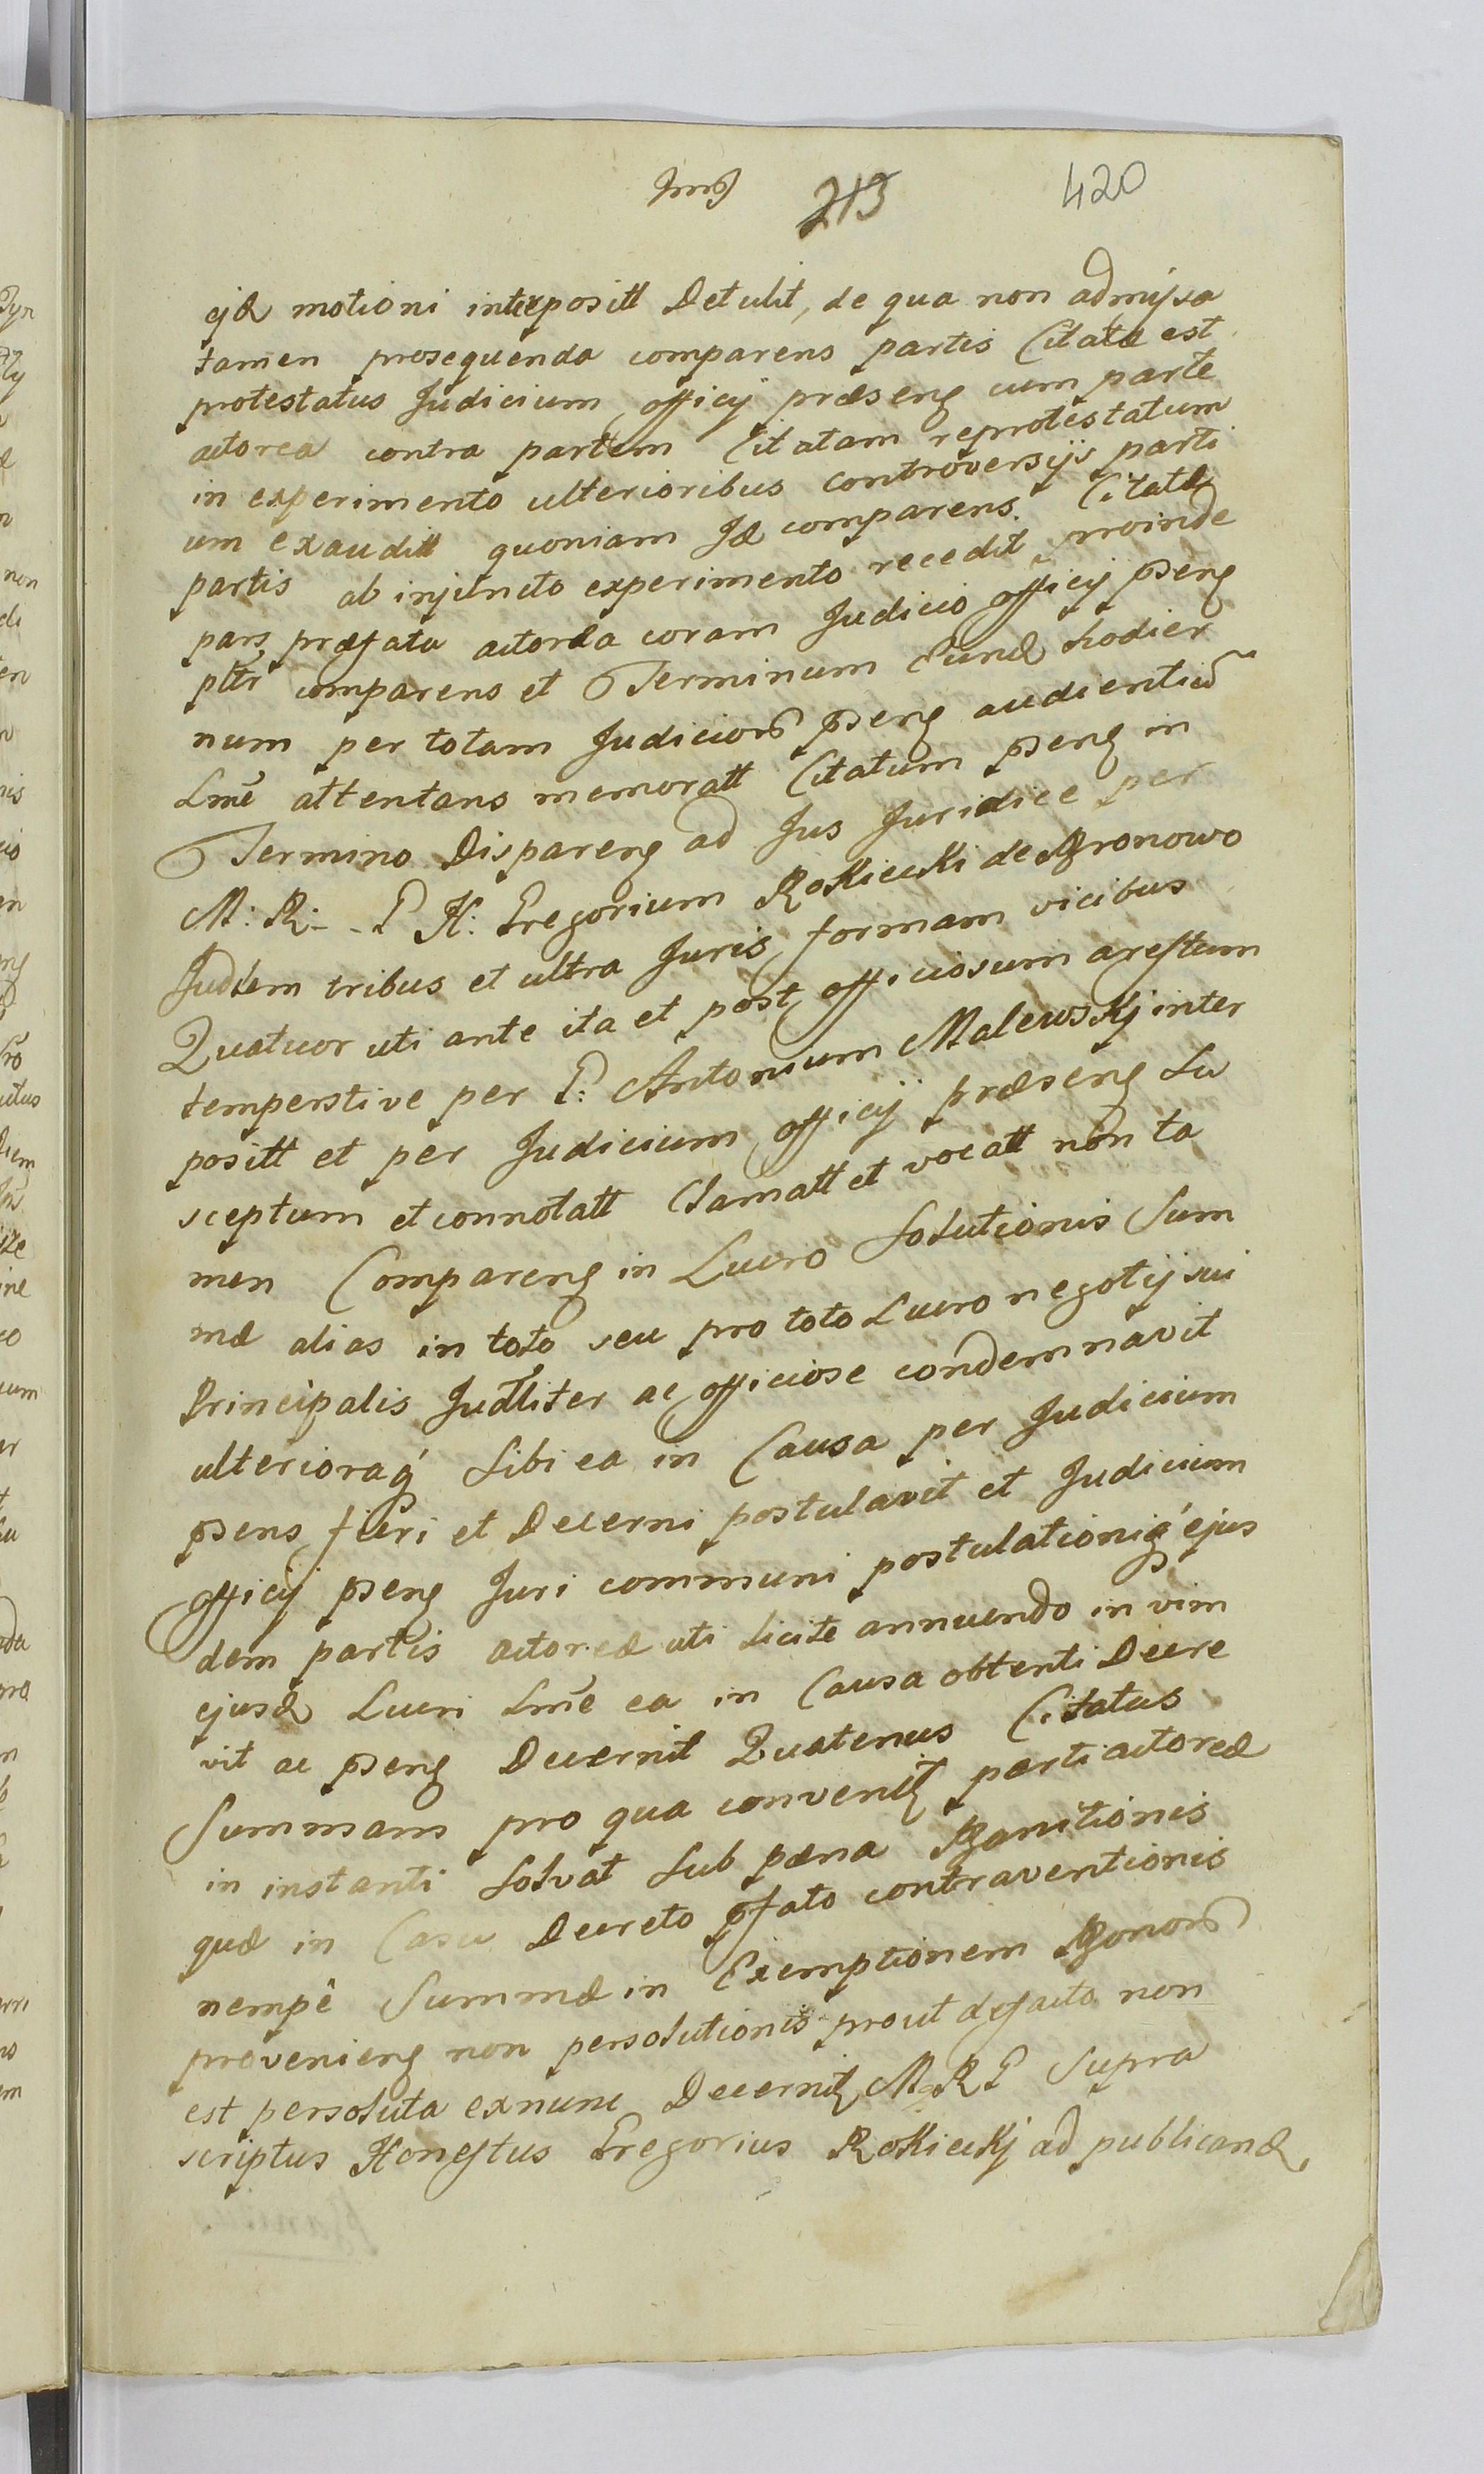 213 420
ejd motioni interpositt Detulit, de qua non admissa
tamen prosequenda comparens partis Citatæ est
protestatus Judicium officij præsens cum parte
actorea contra partem Citatam reprotestatum
in experimento ulterioribus controversijs parti
um exauditt quoniam Jd comparens Citatæ
partis ab injuncto experimento recedit proinde
pars præfata actorea coram Judicio officij pseng
pltr comparens et Terminum Eund hodier
num per totam Judicior pseng audientia
Lme attentans memoratt Citatum pseng in
Termino Dispareng ad Jus Juridice per
M: R: - P H: Gregorium Rokicki de Bronowo
Judlem tribus et ultra Juris formam vicibus
Quatuor uti ante ita et post officiosum arestum
temperstive per P: Antonium Malewskj inter
positt et per Judicium officij præseng Su
sceptum et connotatt Clamatt et vocatt non ta
men Compareng in Lucro Solutionis Sum
mæ alias in toto seu pro toto Lucro negotij sui
Principalis Judliter ac officiose condemnavit
ulterioraq́ Sibi ea in Causa per Judicium
psens fieri et Decerni postulavit et Judicium
officij pseng Juri communi postulationiq́ ejus
dem partis actoreæ uti licite annuendo in vim
ejusd Lucri Lme ea in Causa obtenti Decre
vit ac pseng Decernit Quatenus Citatus
Summam pro qua convenit parti actoreæ
in instanti Solvat Sub pæna Banitionis
quæ in Casu Decreto pfato contraventionis
nempe Summæ in Exemptionem Bonor
provenieng non persolutionis prout defacto non
est persoluta exnunc Decernit M R P Supra
scriptus Honestus Gregorius Rokickj ad publicand